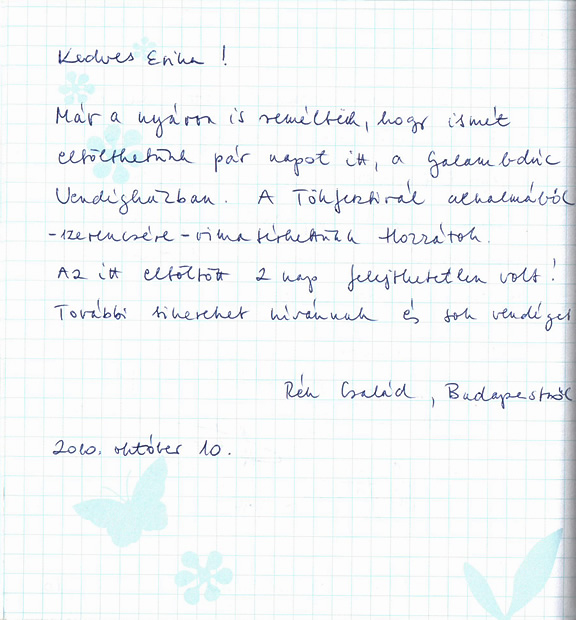 Kedves Erika!
Már a nyáron is reméltük, hogy ismét
eltölthetünk pár napot itt, a Galambdúc
Vendégházban. A Tökfesztivál alkalmából
-szerencsére-visszatérhettünk Hozzátok.
Az itt eltöltött 2 nap felejthetetlen volt!
További sikereket kívánunk és sok vendéget
Rék Család, Budapestről
2010. október 10.